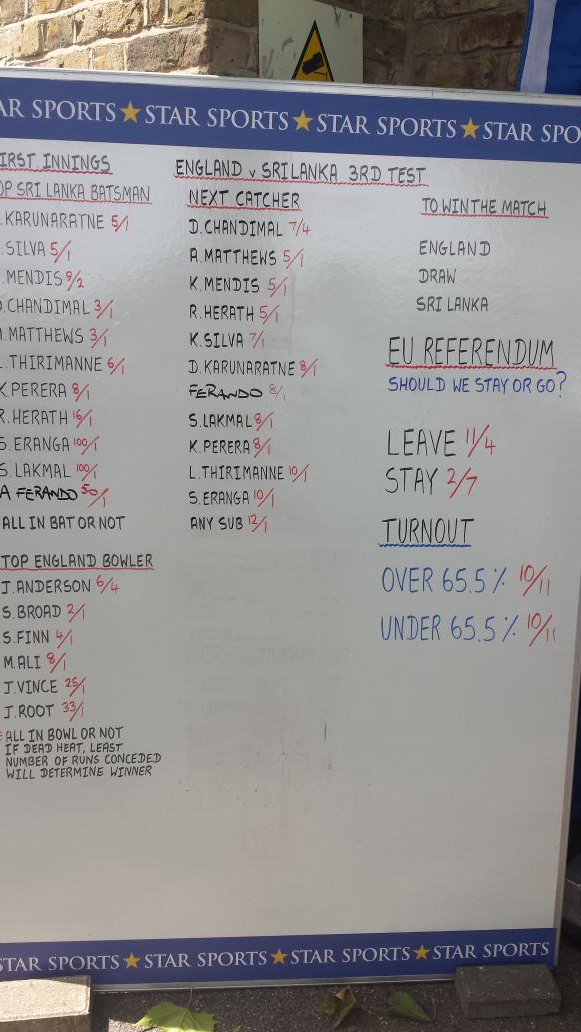 AR SPORTS★STAR SPORTS★STAR SPORTS★STAR SPO
IRST INNINGS
OP SRI LANKA BATSMAN
.KARUNARATNE 5/1
.SILVA 5/1
.MENDIS 9/2
D.CHANDIMAL 3/1
.MATTHEWS 3/1
L.THIRIMANNE 6/1
K.PERERA 8/1
R.HERATH 16/1
S.ERANGA 100/1
S.LAKMAL 100/1
A FERANDO 50/1
ALL IN BAT OR NOT
TOP ENGLAND BOWLER
J.ANDERSON 6/4
S.BROAD 2/1
S.FINN 4/1
M.ALI 8/1
J.VINCE 25/1
J.ROOT 33/1
ALL IN BOWL OR NOT
IF DEAD HEAT, LEAST
NUMBER OF RUNS CONCEDED
WILL DETERMINE WINNER
ENGLAND v SRI LANKA 3RD TEST
NEXT CATCHER
D.CHANDIMAL 7/4
A.MATTHEWS 5/1
K.MENDIS 5/1
R.HERATH 5/1
K.SILVA 7/1
D.KARUNARATNE 8/1
FERANDO 8/1
S.LAKMAL 8/1
K.PERERA 8/1
L.THIRIMANNE 10/1
S.ERANGA 10/1
ANY SUB 12/1
TO WIN THE MATCH
ENGLAND
DRAW
SRI LANKA
EU REFERENDUM
SHOULD WE STAY OR GO?
LEAVE 11/4
STAY 2/7
TURNOUT
OVER 65.5% 10/11
UNDER 65.5% 10/11
STAR SPORTS★STAR SPORTS★STAR SPORTS★STAR SPORTS